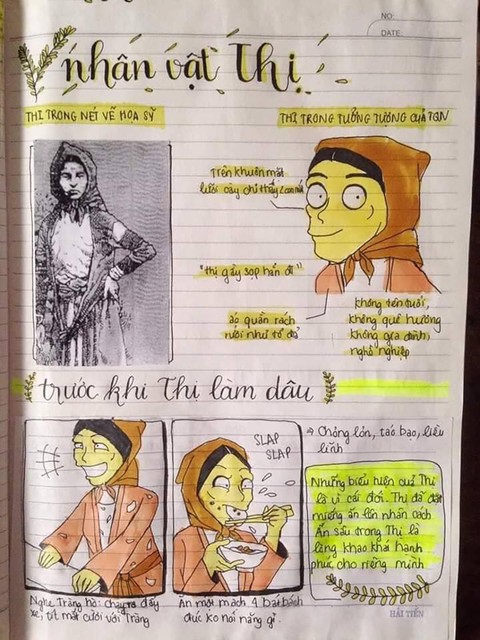 NO:
DATE
nhân vật Thị
THỊ TRONG NÉT VẼ HỌA SỸ
THỊ TRONG TƯỞNG TƯỢNG CỦA TQN
Trên khuôn mặt
lưỡi cày chỉ thấy 2 con mắt
"thị gầy sọp hẳn đi"
áo quần rách
rưới như tổ đỉa
không tên tuổi,
không quê hương
không gia đình,
nghề nghiệp
trước khi Thị làm dâu
SLAP
SLAP
→ Chỏng lỏn, táo bạo, liều
lĩnh
Những biểu hiện của Thị
là vì cái đói. Thị đã đặt
miếng ăn lên nhân cách
Ẩn sâu trong Thị là
lòng khao khát hạnh
phúc cho riêng mình
Nghe Tràng hò: chạy ra đẩy
xe, tít mắt cười với Tràng
Ăn một mạch 4 bát bánh
đúc ko nói năng gì.
HẢI TIẾN